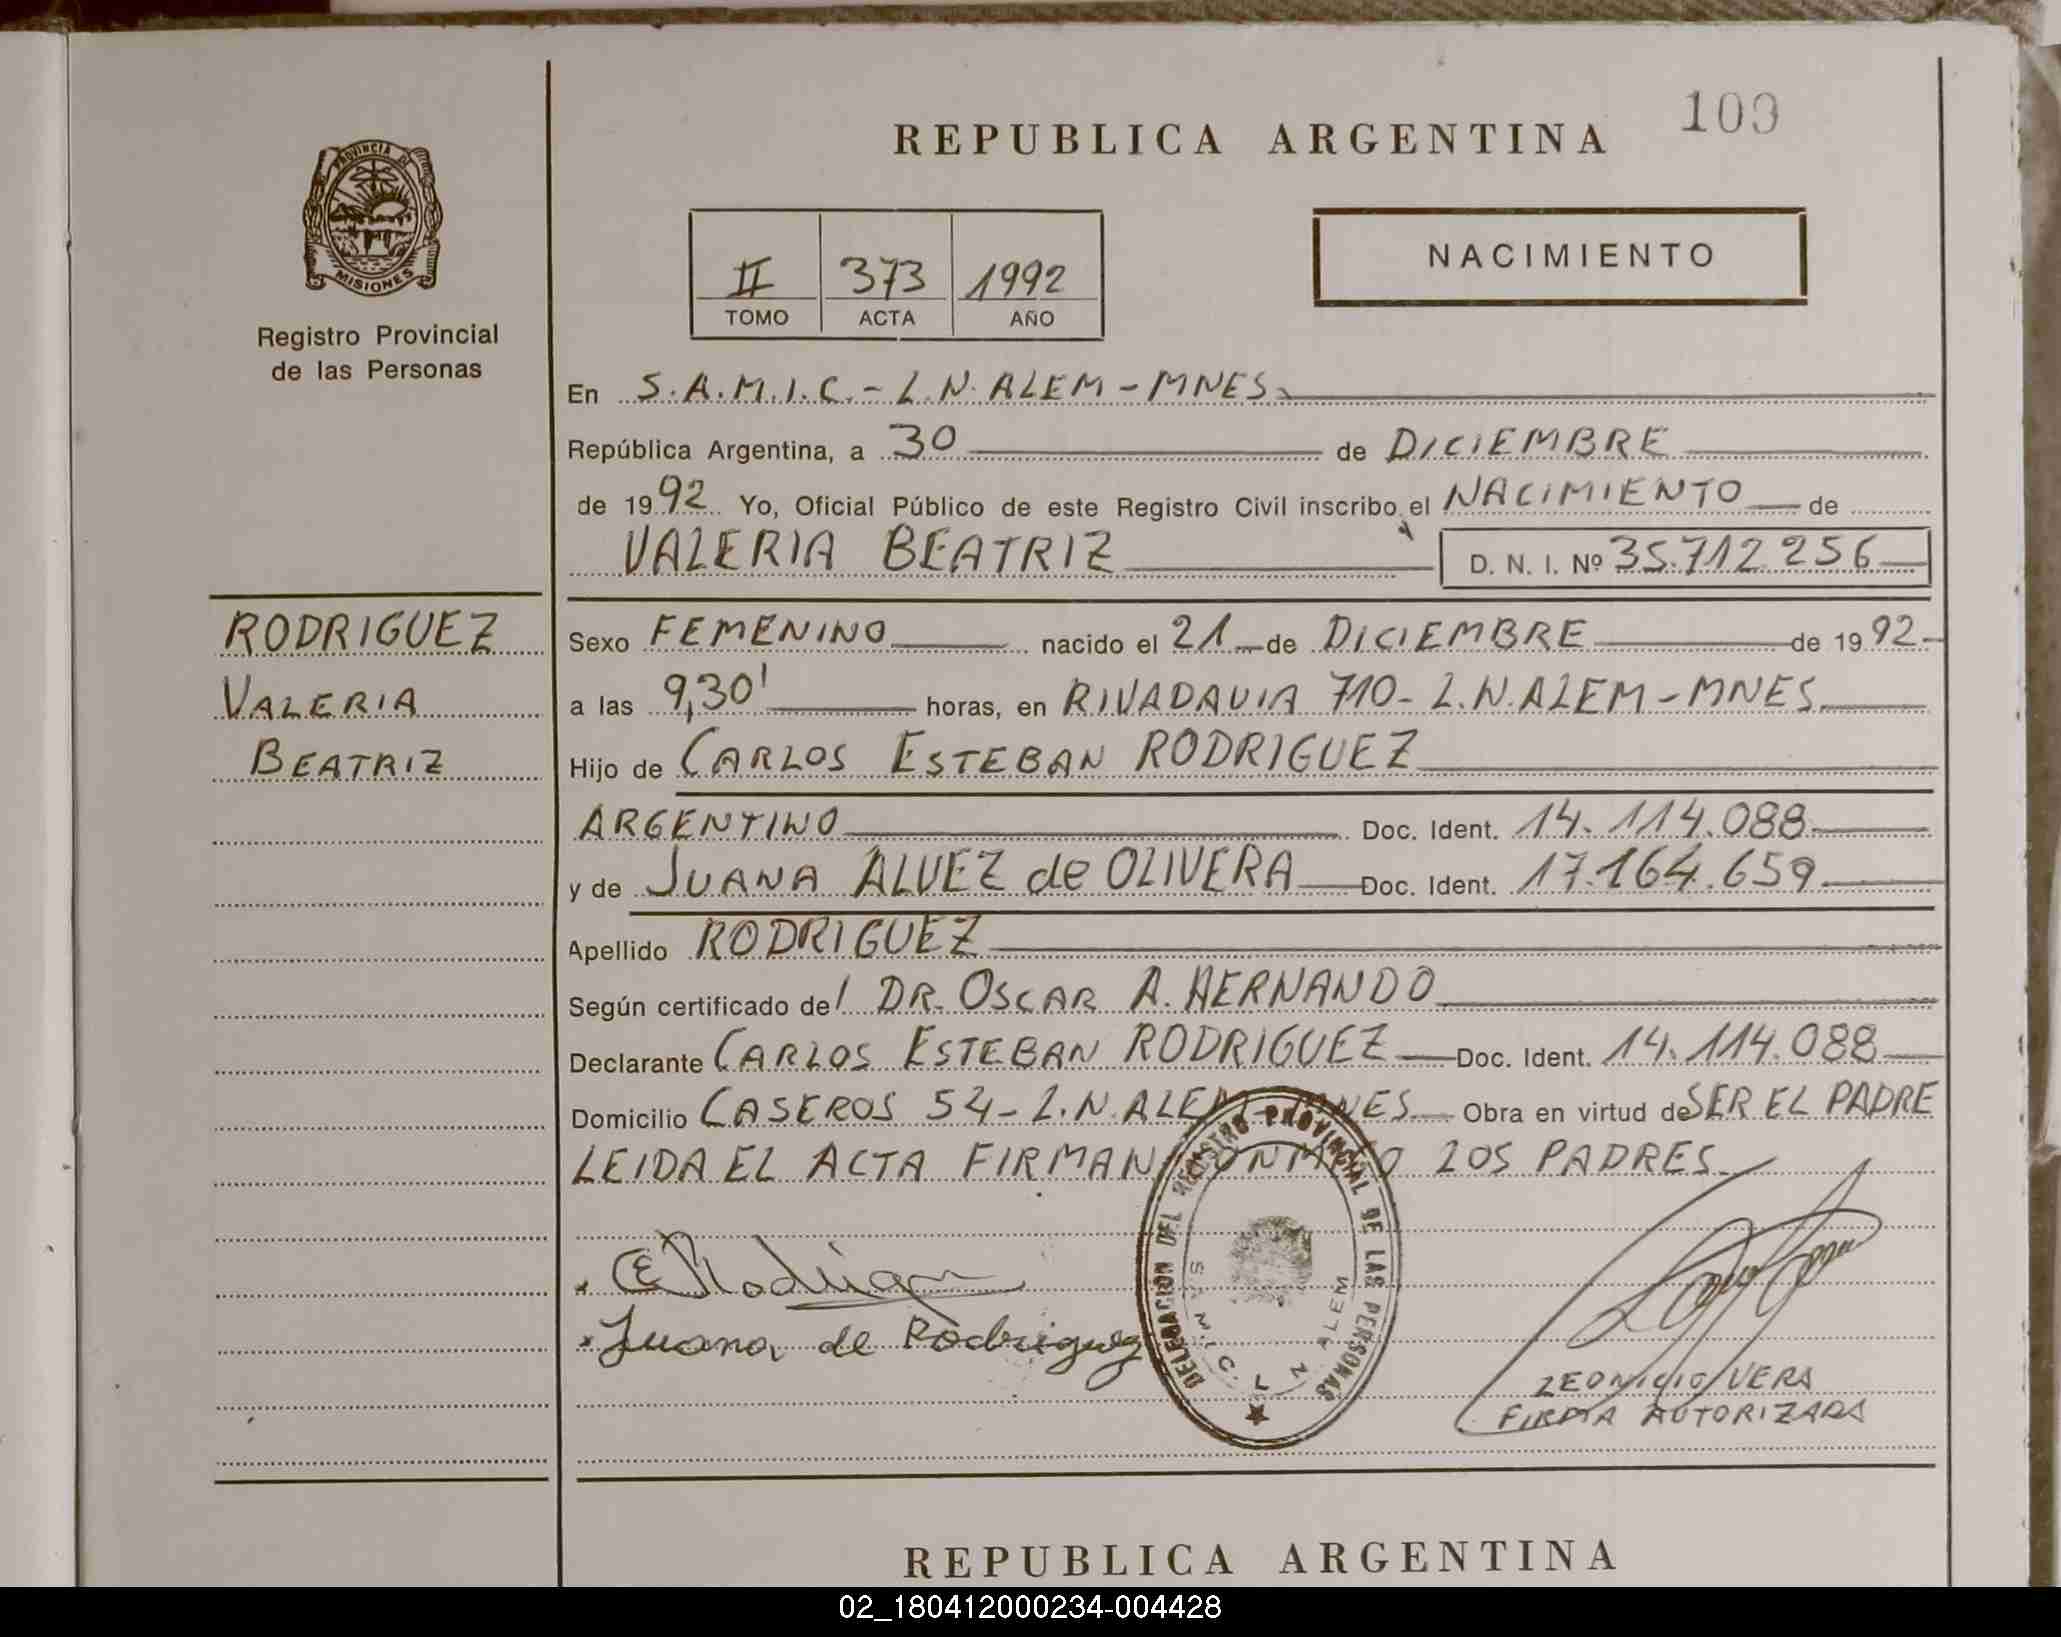 REPUBLICA ARGENTINA
109
PROVINCIA DE MISIONES
Registro Provincial
de las Personas
II 373 1992
TOMO ACTA AÑO
NACIMIENTO
En S.A.M.I.C. - L.N. ALEM - MNES
República Argentina, a 30 de DICIEMBRE
de 1992. Yo, Oficial Público de este Registro Civil inscribo el NACIMIENTO de
VALERIA BEATRIZ D. N. I. Nº 35.712.256
RODRIGUEZ
VALERIA
BEATRIZ
Sexo FEMENINO nacido el 21 de DICIEMBRE de 1992
a las 9,30' horas, en RIVADAVIA 710 - L.N. ALEM - MNES
Hijo de CARLOS ESTEBAN RODRIGUEZ
ARGENTINO Doc. Ident. 14.114.088
y de JUANA ALVEZ de OLIVERA Doc. Ident. 17.164.659
Apellido RODRIGUEZ
Según certificado del DR. OSCAR A. HERNANDO
Declarante CARLOS ESTEBAN RODRIGUEZ Doc. Ident. 14.114.088
Domicilio CASEROS 54 - L.N. ALEM - MNES Obra en virtud de SER EL PADRE
LEIDA EL ACTA FIRMAN CONMIGO LOS PADRES
CERodriguez
Juana de Rodriguez
DELEGACION DEL REGISTRO PROVINCIAL DE LAS PERSONAS
S.A.M.I.C. L N ALEM
LEONICIO VERA
FIRMA AUTORIZADA
REPUBLICA ARGENTINA
02_180412000234-004428